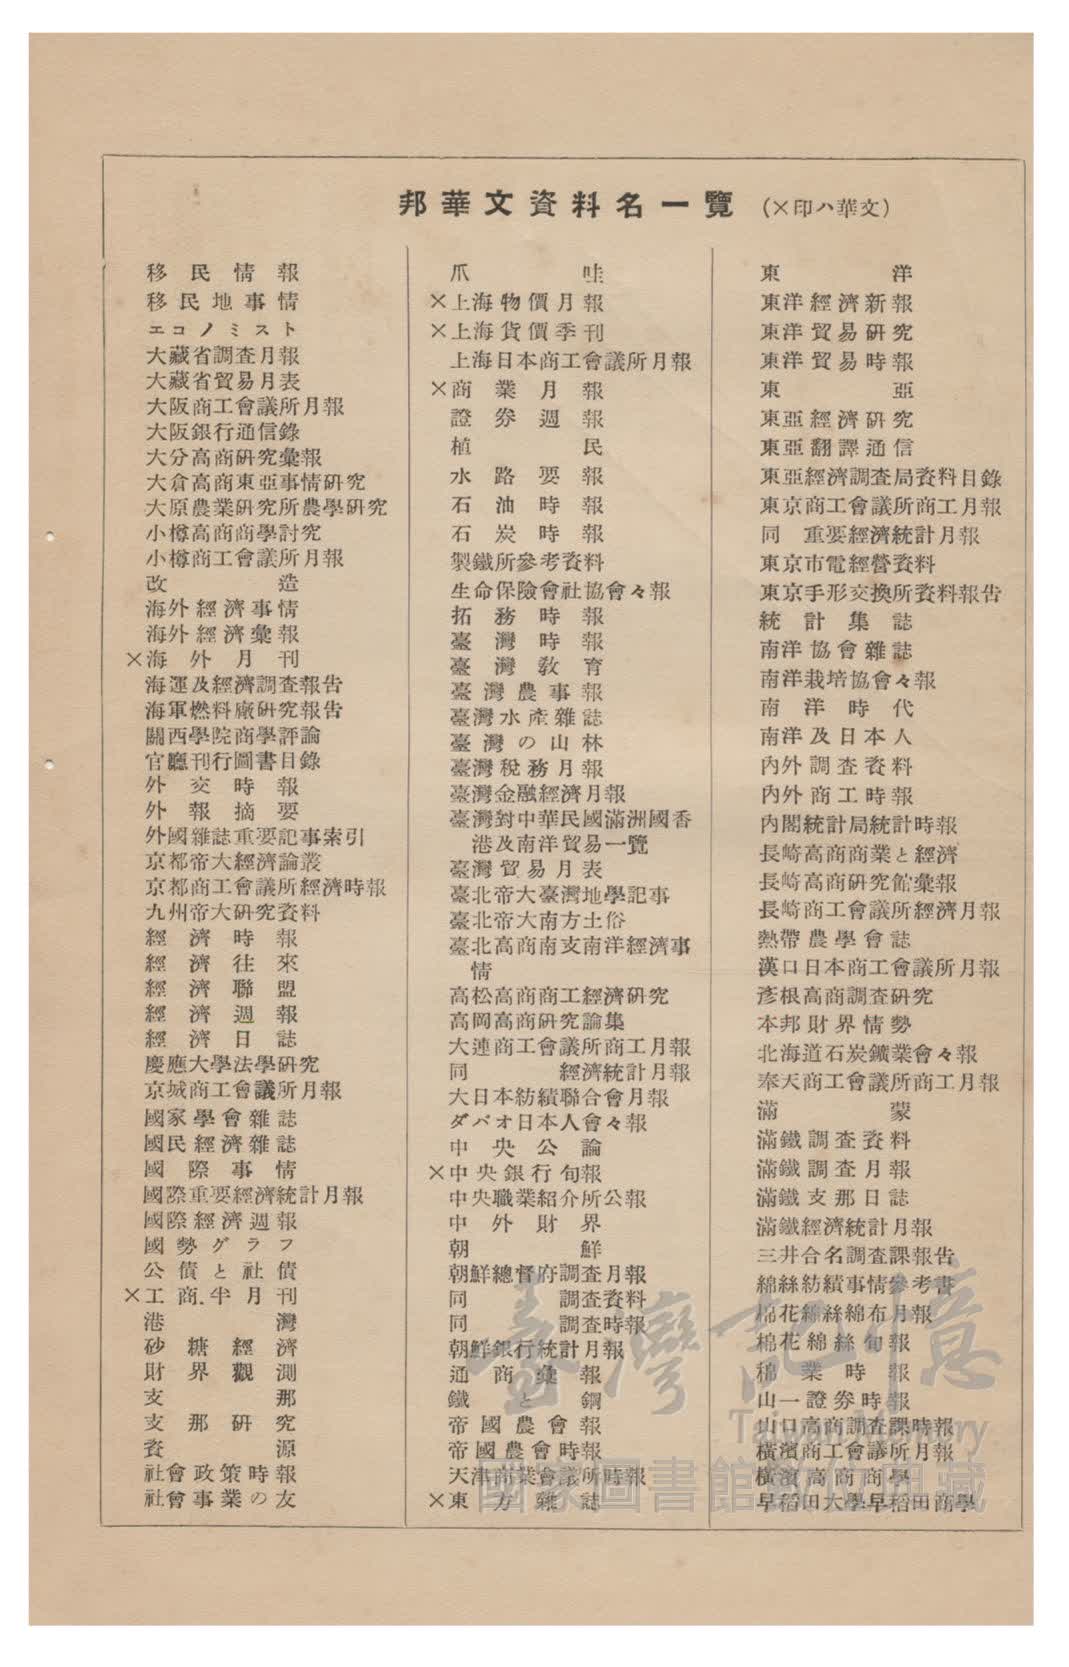 邦華文資料名一覽 (×印ハ華文)
移民情報
移民地事情
エコノミスト
大藏省調査月報
大藏省貿易月表
大阪商工會議所月報
大阪銀行通信錄
大分高商硏究彙報
大倉高商東亞事情硏究
大原農業硏究所農學硏究
小樽高商商學討究
小樽商工會議所月報
改造
海外經濟事情
海外經濟彙報
×海外月刊
海運及經濟調査報告
海軍燃料廠硏究報告
關西學院商學評論
官廳刊行圖書目錄
外交時報
外報摘要
外國雜誌重要記事索引
京都帝大經濟論叢
京都商工會議所經濟時報
九州帝大硏究資料
經濟時報
經濟往來
經濟聯盟
經濟週報
經濟日誌
慶應大學法學硏究
京城商工會議所月報
國家學會雜誌
國民經濟雜誌
國際事情
國際重要經濟統計月報
國際經濟週報
國勢グラフ
公債と社債
×工商半月刊
港灣
砂糖經濟
財界觀測
支那
支那硏究
資源
社會政策時報
社會事業の友
爪哇
×上海物價月報
×上海貨價季刊
上海日本商工會議所月報
×商業月報
證券週報
植民
水路要報
石油時報
石炭時報
製鐵所參考資料
生命保險會社協會々報
拓務時報
臺灣時報
臺灣敎育
臺灣農事報
臺灣水產雜誌
臺灣の山林
臺灣稅務月報
臺灣金融經濟月報
臺灣對中華民國滿洲國香
港及南洋貿易一覽
臺灣貿易月表
臺北帝大臺灣地學記事
臺北帝大南方土俗
臺北高商南支南洋經濟事
情
高松高商商工經濟硏究
高岡高商硏究論集
大連商工會議所商工月報
同 經濟統計月報
大日本紡績聯合會月報
ダバオ日本人會々報
中央公論
×中央銀行旬報
中央職業紹介所公報
中外財界
朝鮮
朝鮮總督府調査月報
同 調査資料
同 調査時報
朝鮮銀行統計月報
通商彙報
鐵と鋼
帝國農會報
帝國農會時報
天津商業會議所時報
×東方雜誌
東洋
東洋經濟新報
東洋貿易硏究
東洋貿易時報
東亞
東亞經濟硏究
東亞翻譯通信
東亞經濟調査局資料目錄
東京商工會議所商工月報
同 重要經濟統計月報
東京市電經營資料
東京手形交換所資料報告
統計集誌
南洋協會雜誌
南洋栽培協會々報
南洋時代
南洋及日本人
內外調査資料
內外商工時報
內閣統計局統計時報
長崎高商商業と經濟
長崎高商硏究館彙報
長崎商工會議所經濟月報
熱帶農學會誌
漢口日本商工會議所月報
彥根高商調査硏究
本邦財界情勢
北海道石炭鑛業會々報
奉天商工會議所商工月報
滿蒙
滿鐵調査資料
滿鐵調査月報
滿鐵支那日誌
滿鐵經濟統計月報
三井合名調査課報告
綿絲紡績事情參考書
棉花綿絲綿布月報
棉花綿絲旬報
棉業時報
山一證券時報
山口高商調査課時報
橫濱商工會議所月報
橫濱高商商學
早稻田大學早稻田商學
臺灣記憶
Taiwan Memory
國家圖書館數位典藏